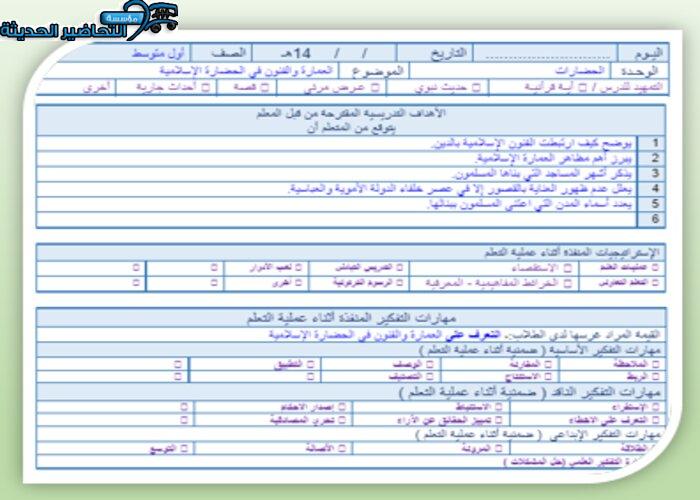 مؤسسة
التحاضير الحديثة
اليوم ............................ التاريخ / / 14هـ الصف أول متوسط
الوحدة الحضارات الموضوع العمارة والفنون في الحضارة الإسلامية
التمهيد للدرس / □ آية قرآنية □ حديث نبوي □ عرض مرئي □ قصة □ أحداث جارية أخرى
الأهداف التدريسية المقترحة من قبل المعلم
يتوقع من المتعلم أن
1 يوضح كيف ارتبطت الفنون الإسلامية بالدين.
2 يبرز أهم مظاهر العمارة الإسلامية.
3 يذكر أشهر المساجد التي بناها المسلمون.
4 يعلل عدم ظهور العناية بالقصور إلا في عصر خلفاء الدولة الأموية والعباسية.
5 يعدد أسماء المدن التي اعتنى المسلمون ببنائها.
6
الإستراتيجيات المنفذة أثناء عملية التعلم
□ عمليات العلم □ الاستقصاء □ التدريس التبادلي □ لعب الأدوار □ □
□ التعلم التعاوني □ الخرائط المفاهيمية - المعرفية □ الرسوم الكرتونية □ أخرى □ □
مهارات التفكير المنفذة أثناء عملية التعلم
القيمه المراد غرسها لدى الطلاب:. التعرف على العمارة والفنون في الحضارة الإسلامية
مهارات التفكير الأساسية ( ضمنية أثناء عملية التعلم )
□ الملاحظة □ المقارنة □ الوصف □ التطبيق □
□ الربط □ الاستنتاج □ التصنيف □ □
مهارات التفكير الناقد ( ضمنية أثناء عملية التعلم )
□ الإستقراء □ الاستنباط □ إصدار الاحكام □
□ التعرف على الاخطاء □ تمييز الحقائق عن الآراء □ تحري المصداقية □
مهارات التفكير الإبداعي ( ضمنية أثناء عملية التعلم )
الطلاقة □ المرونة □ الأصالة □ التوسع □
التفكير العلمي (حل المشكلات )